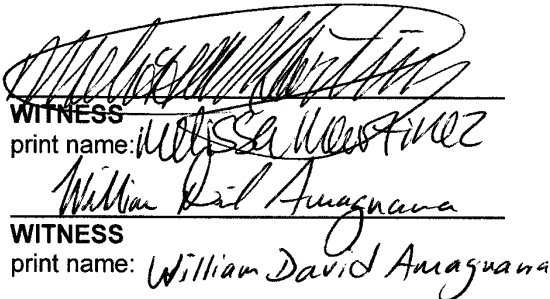 Melissa Martinez
WITNESS
print name: Melissa Martinez
William David Amaguana
WITNESS
print name: William David Amaguana